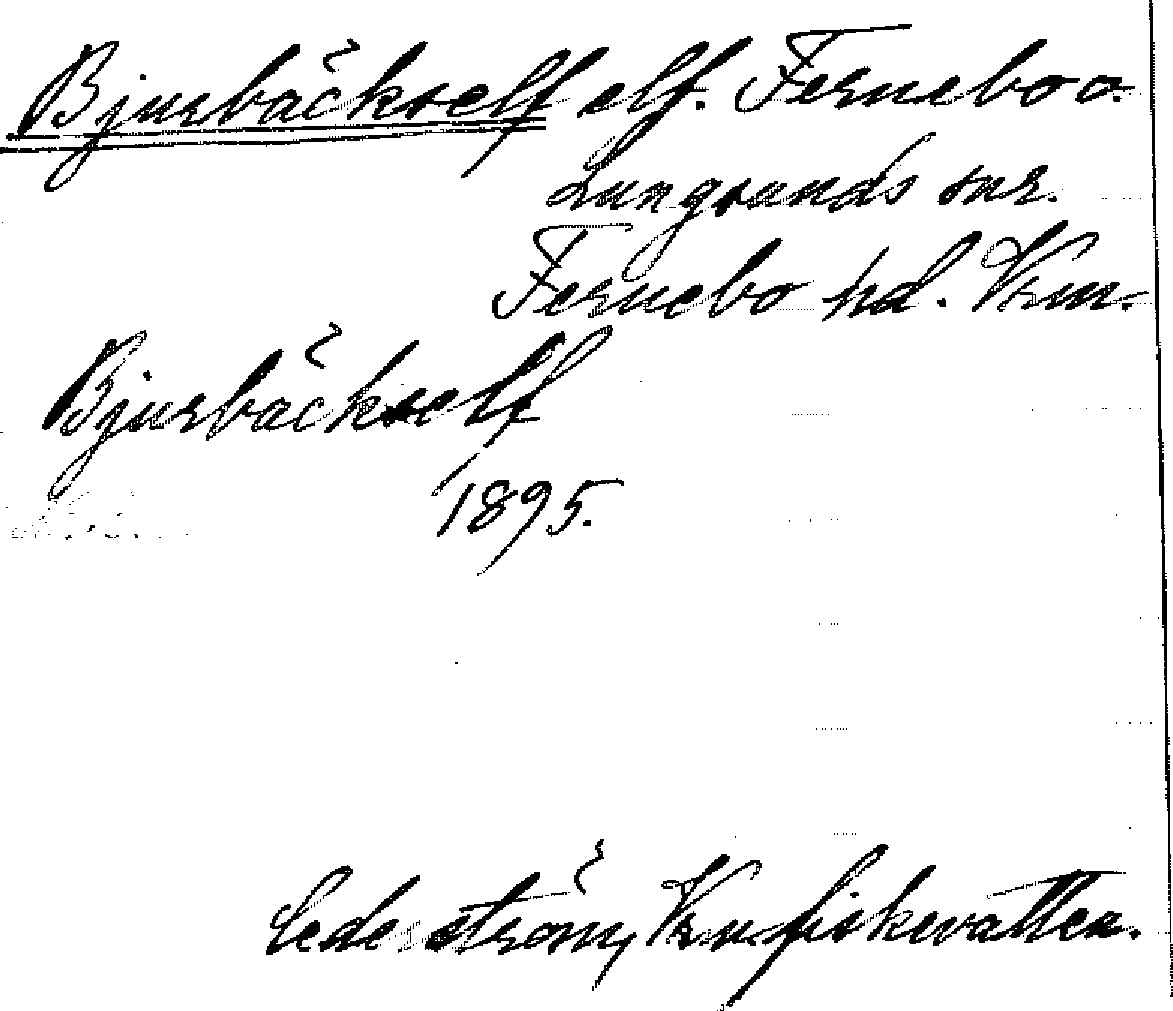 Bjurbäckself elf. Fernebo o.
Lungsunds snr.
Fernebo hd. Vrm.
Bjurbäckself
1895.
Cederström, Vrm. fiskevatten.